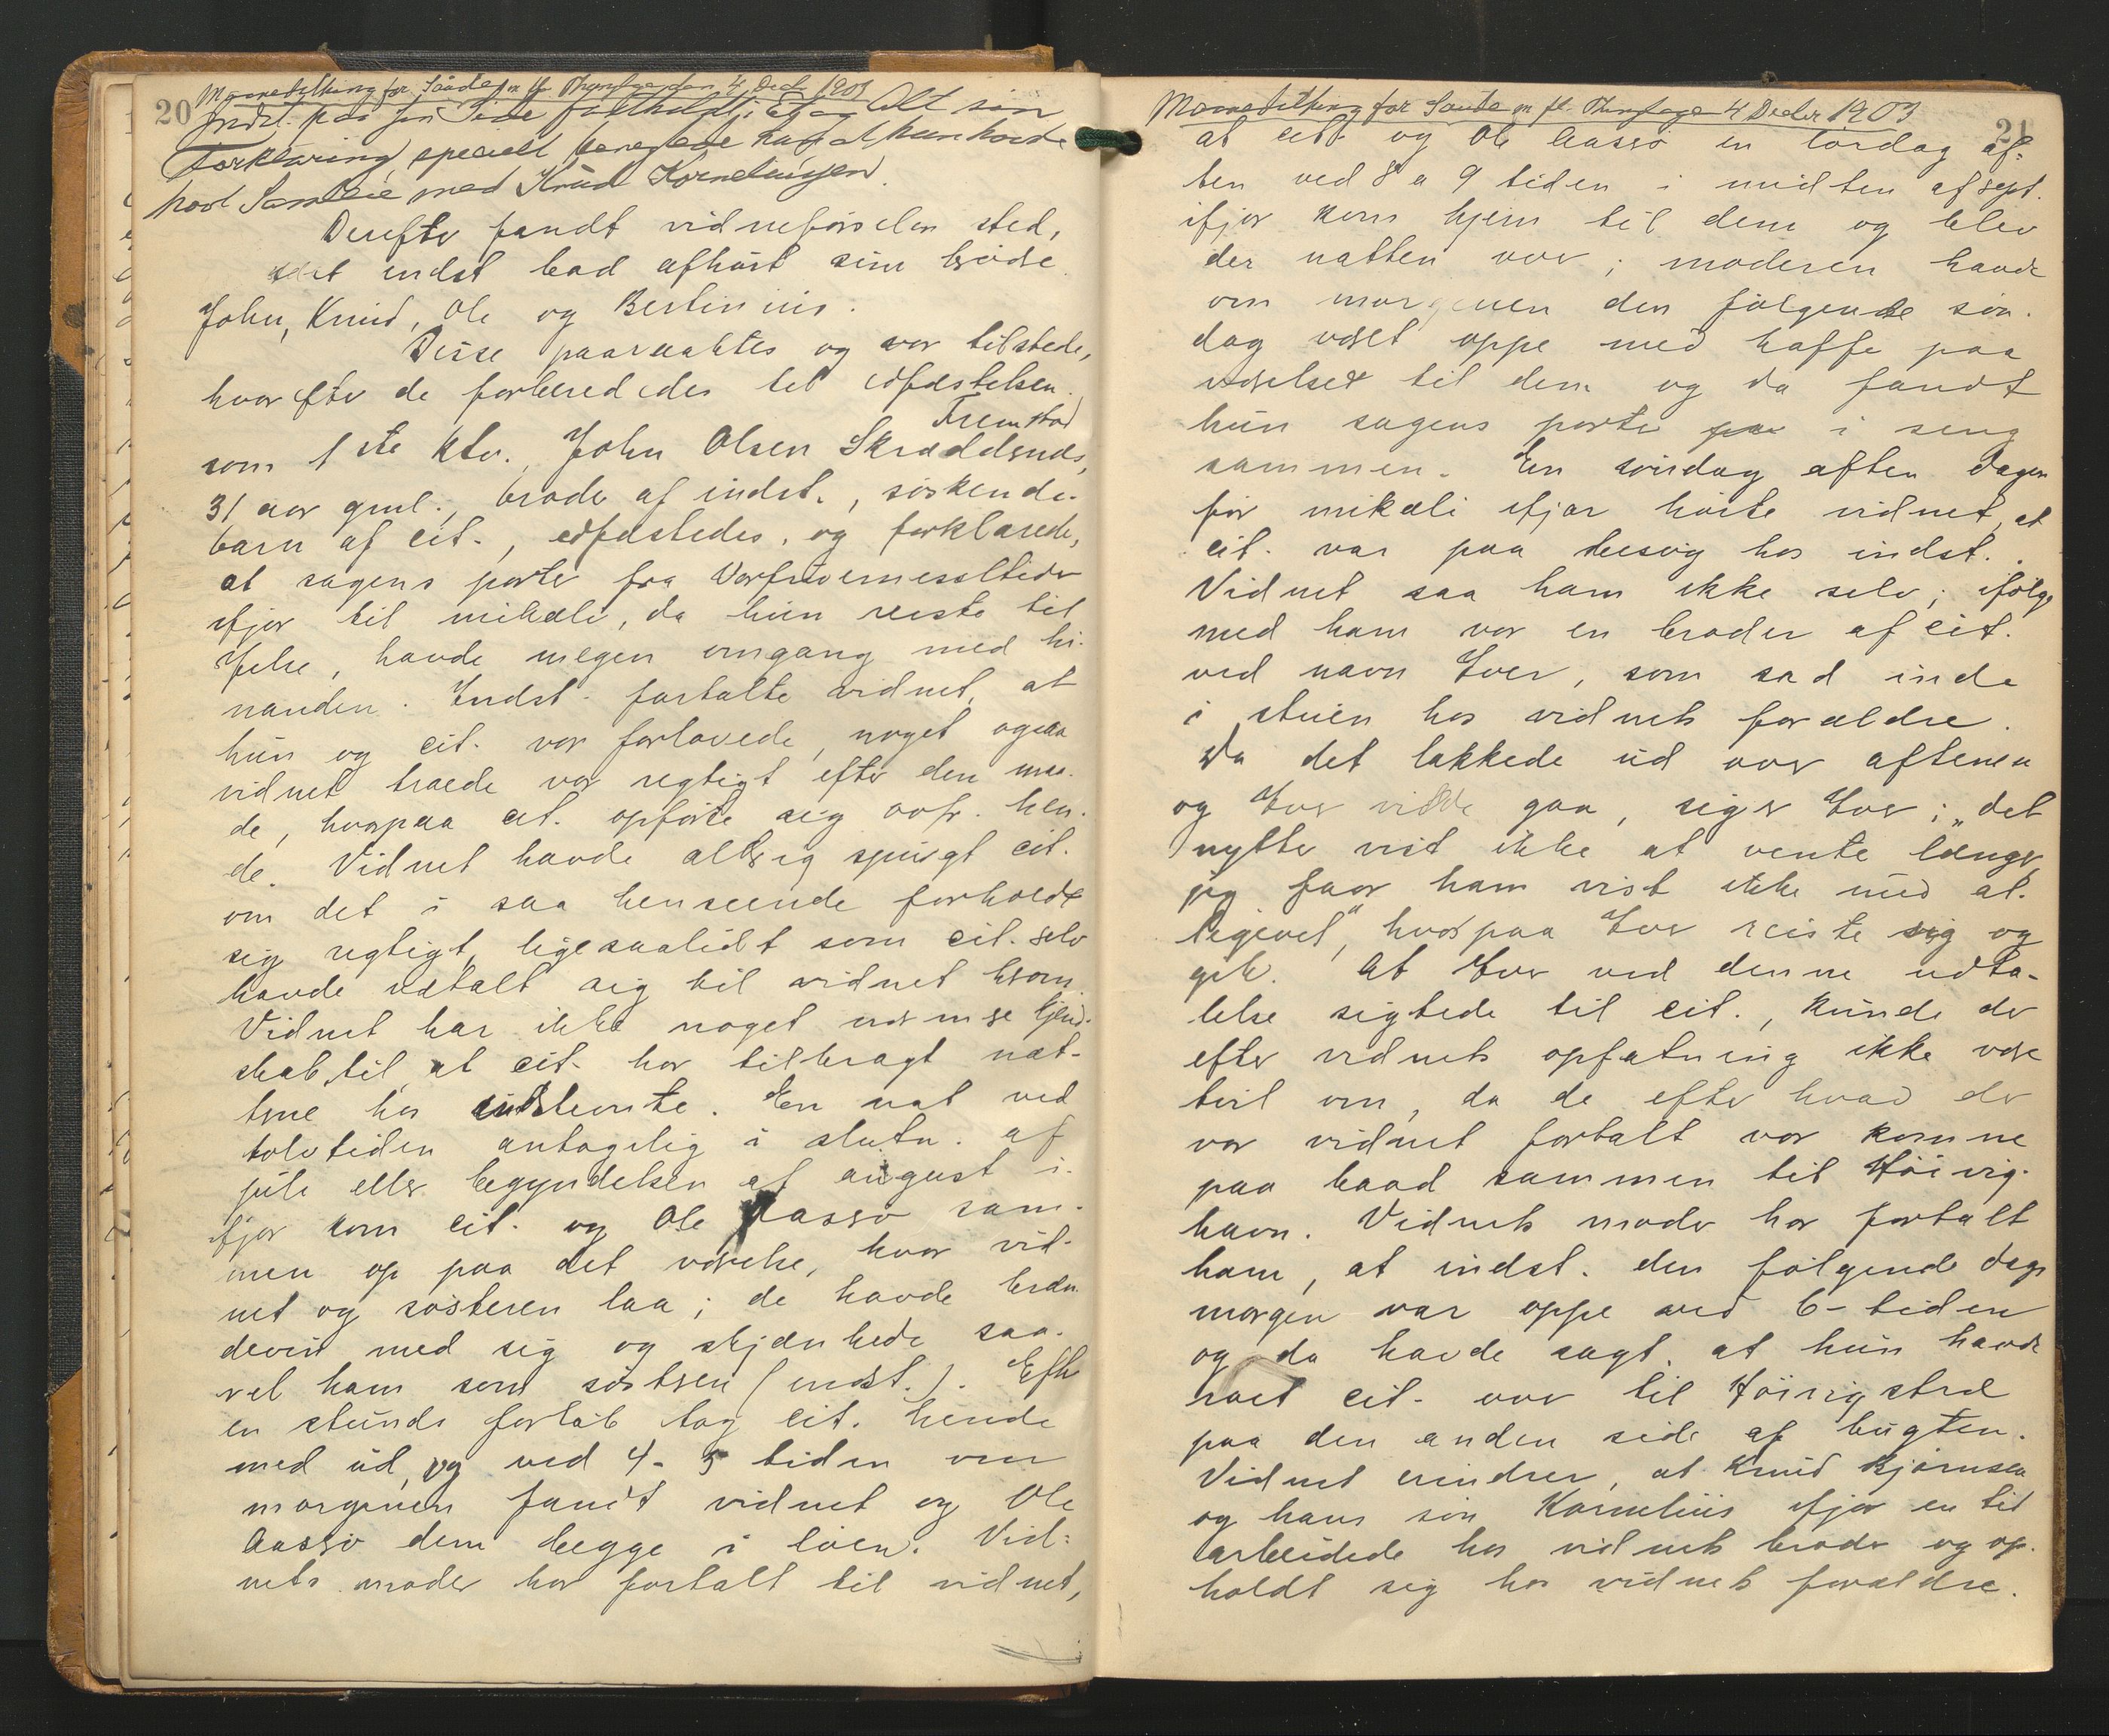 20
Maanedsthing for Saude m fl Thinglag den 4 Decbr 1903
Indst. paa sin Side fastholdt i Et og Alt sin
Forklaring, specielt benegtede hun at hun havde
havt Samleie med Knud Korneliussen.
Derefter fandt vidneførselen sted,
idet indst bad afhørt sine brødre
John, Knud, Ole og Bertinius.
Disse paaraabtes og var tilstede,
hvorefter de forberededes til edfæstelsen.
Fremstod
som 1ste vdn. John Olsen Skraddsnds,
31 aar gml., broder af indst., søskende-
barn af cit., edfæstedes, og forklarede,
at sagens parter fra Vorfruemesseltider
ifjor til mikæli, da hun reiste til
Helse, havde megen omgang med hi-
nanden. Indst. fortalte vidnet, at
hun og cit. var forlovede, noget ogsaa
vidnet troede var rigtigt efter den maa-
de, hvorpaa cit. opførte sig ovfr. hen-
de. Vidnet havde aldrig spurgt cit.
om det i saa henseende forholdt
sig rigtigt, ligesaalidt som cit. selv
havde udtalt sig til vidnet herom.
Vidnet har ikke noget nærmere kjend-
skab til, at cit. har tilbragt næt-
terne hos indstevnte. En nat ved
tolvtiden antagelig i slutn. af
juli eller begyndelsen af august i-
fjor kom cit. og Ole Aassø sam-
men op paa det værelse, hvor vid-
net og søsteren laa; de havde bræn-
devin med sig og skjænkede saa-
vel ham som søsteren (indst.). Efter
en stunds forløb tog cit. hende
med ud, og ved 4-5 tiden om
morgenen fandt vidnet og Ole
Aassø dem begge i løen. Vid-
nets moder har fortalt til vidnet,
Maanedsthing for Saude m fl. Thinglag 4 Decbr 1903
21
at cit. og Ole Aassø en lørdag af-
ten ved 8 a 9 tiden i midten af sept.
ifjor kom hjem til dem og blev
der natten over; moderen havde
om morgenen den følgende søn-
dag været oppe med kaffe paa
værelset til dem og da fandt
hun sagens parter paa i seng
sammen. En søndag aften dagen
før mikæli ifjor hørte vidnet, at
cit. var paa besøg hos indst.
Vidnet saa ham ikke selv; ifølge
med ham var en broder af cit.
ved navn Iver, som sad inde
i stuen hos vidnets forældre.
Da det lakkede ud over aftenen
og Iver vilde gaa, siger Iver: "det
nytter vist ikke at vente længer,
jeg faar ham vist ikke med al-
ligevel", hvorpaa Iver reiste sig og
gik. At Iver ved denne udta-
lelse sigtede til cit., kunde der
efter vidnets opfatning ikke være
tvil om, da de efter hvad der
var vidnet fortalt var komne
paa baad sammen til Høivig-
havn. Vidnets moder har fortalt
ham, at indst. den følgende dags
morgen var oppe ved 6-tiden
og da havde sagt, at hun havde
roet cit. over til Høivigstrd
paa den anden side af bugten.
Vidnet erindrer, at Knud Bjørnsen
og hans søn Kornelius ifjor en tid
arbeidede hos vidnets broder og op-
holdt sig hos vidnets forældre.